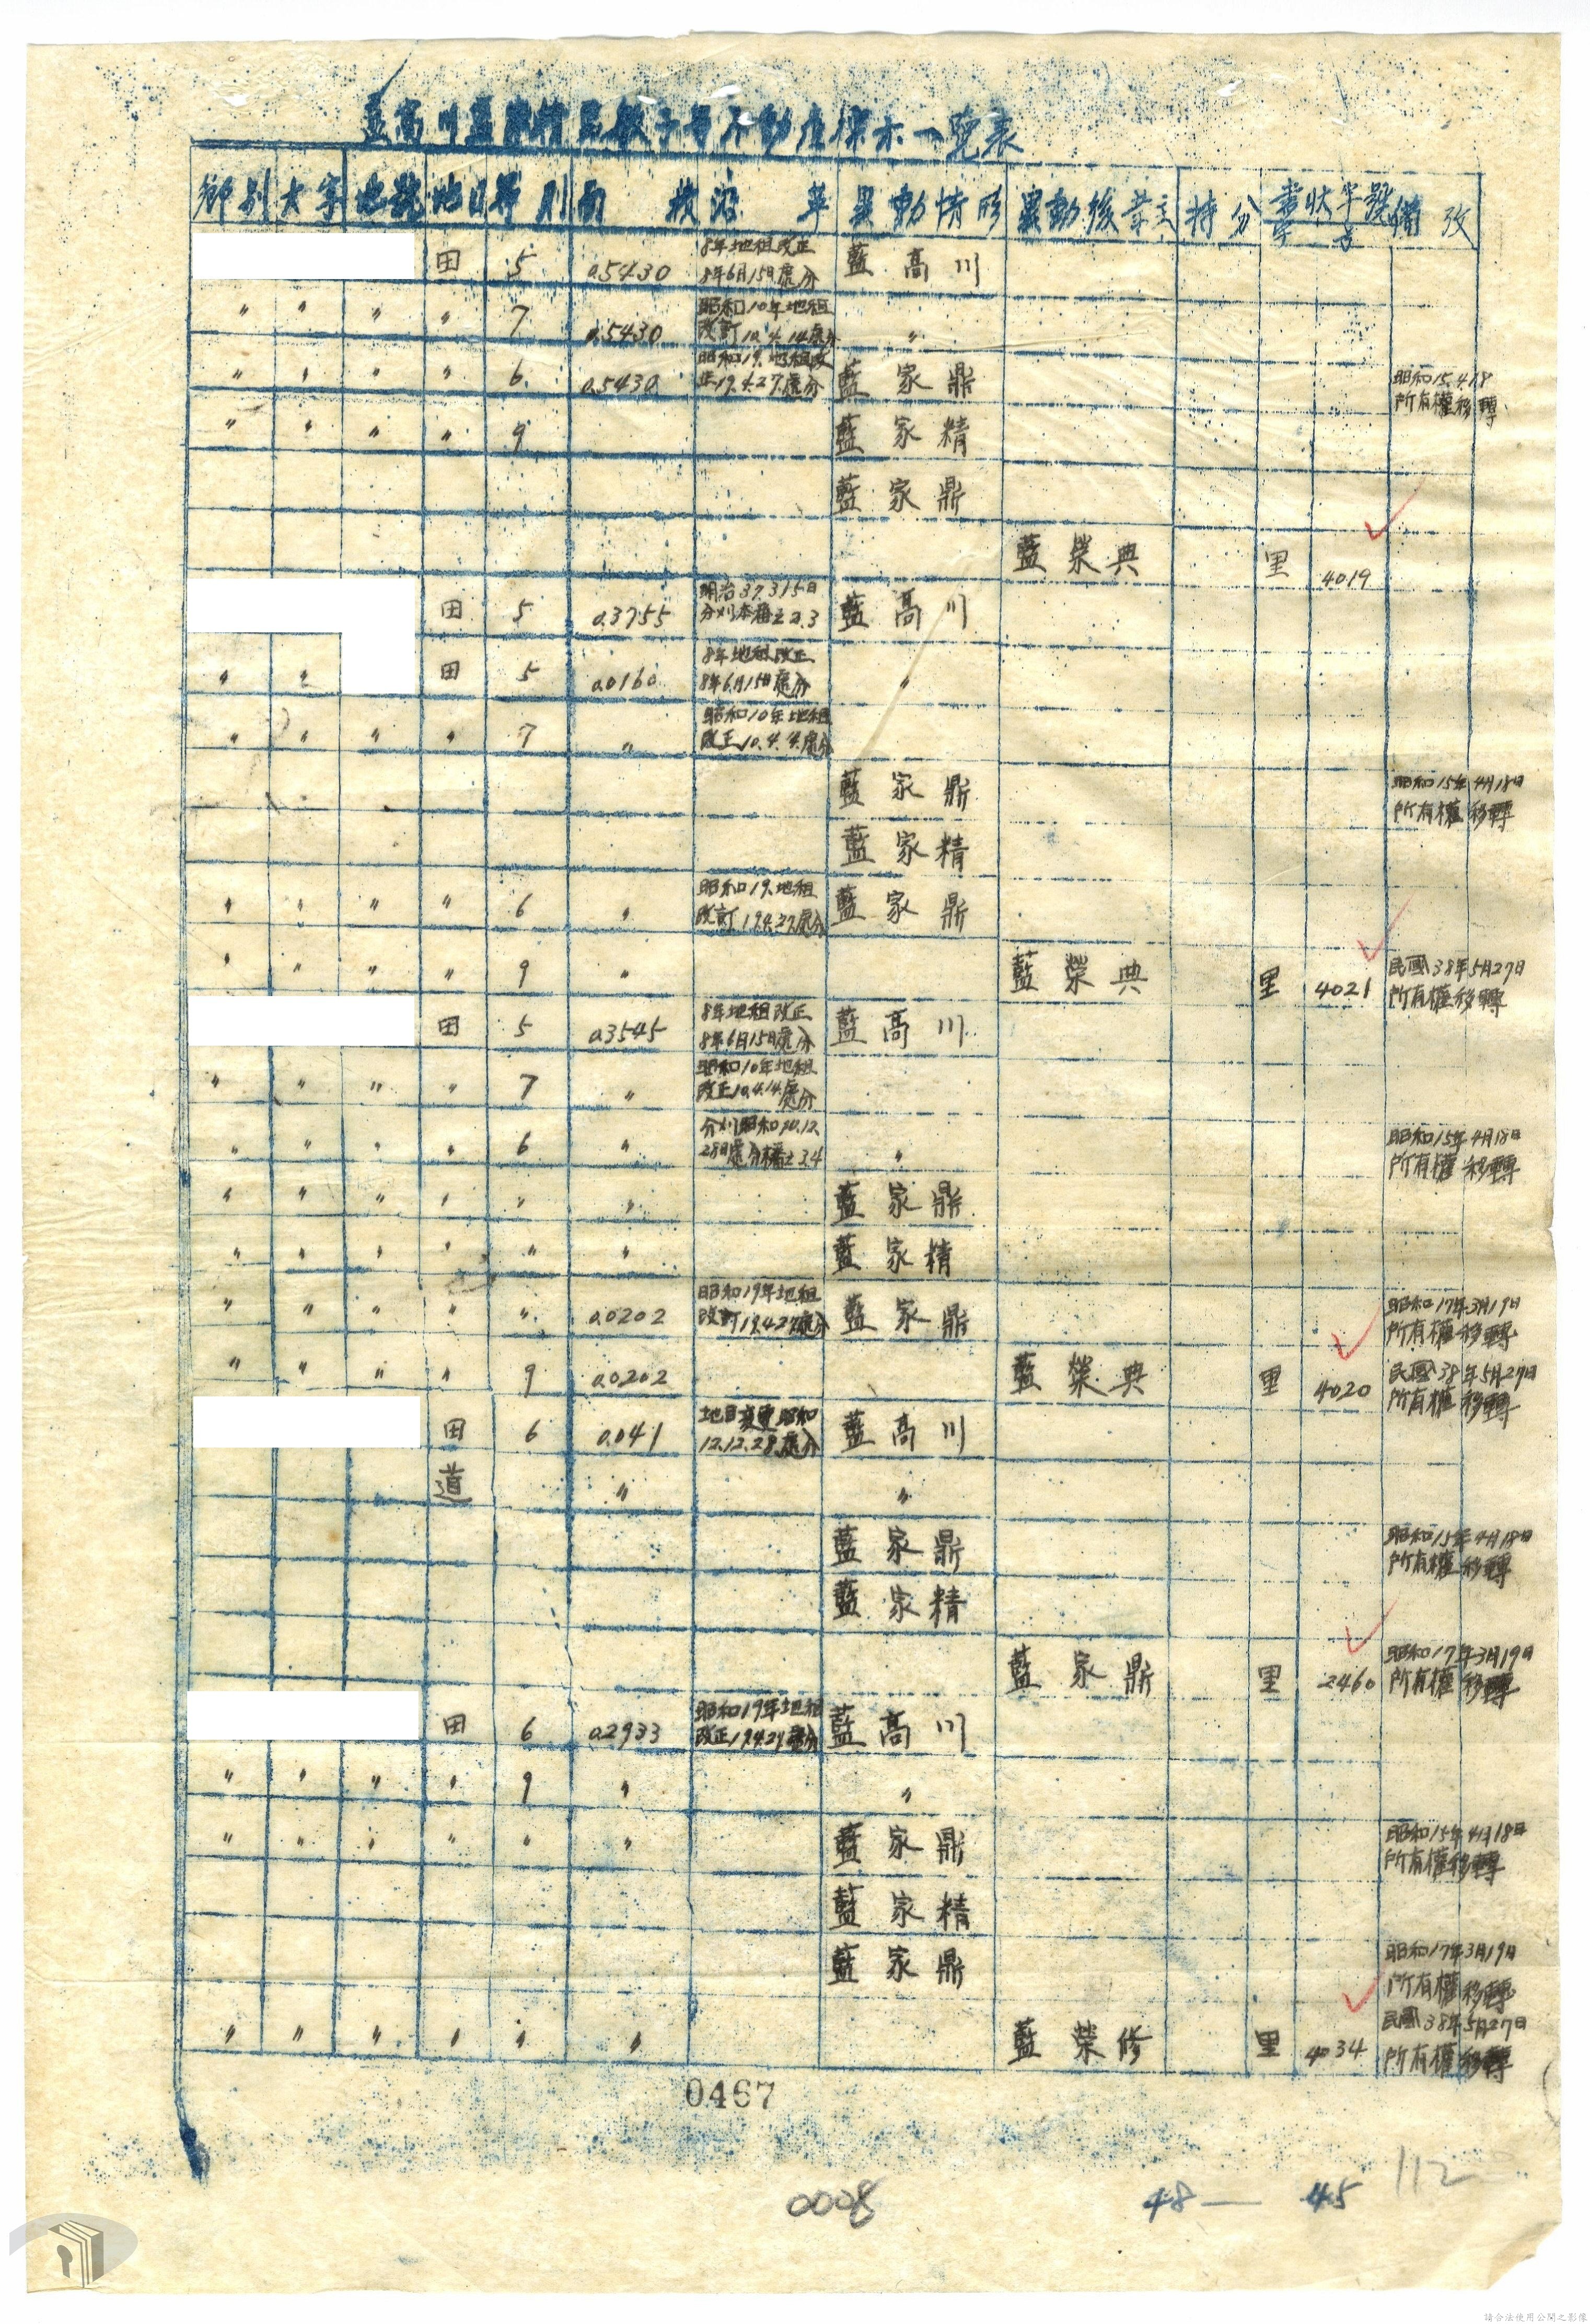 藍高川藍家精 等不動產標示一覽表
鄉別 大字 地號 地目 等則 面積 沿革 異動情形 異動後業主 持分 書狀字號 備攷
田 5 0.5430 8年地租改正 8年6月15日處分 藍高川
〃 〃 〃 〃 7 0.5430 昭和10年地租改訂10.4.14處分 〃
〃 〃 〃 〃 6 0.5430 昭和19.地租改正19.4.27.處分 藍家鼎 昭和15.4.18所有權移轉
〃 〃 〃 〃 9 藍家精
藍家鼎
藍榮典 里 4019
田 5 0.3755 明治37.3.15日分刈本番之2.3 藍高川
〃 〃 田 5 0.0160 8年地租改正 8年6月15日處分 〃
〃 〃 〃 〃 7 〃 昭和10年地租改正10.4.4.處分
藍家鼎 昭和15年4月18日所有權移轉
藍家精
〃 〃 〃 〃 6 〃 昭和19.地租改訂19.4.27.處分 藍家鼎
〃 〃 〃 〃 9 〃 藍榮典 里 4021 民國38年5月27日所有權移轉
田 5 0.3545 8年地租改正 8年6月15日處分 藍高川
〃 〃 〃 〃 7 〃 昭和10年地租改正10.4.14.處分
〃 〃 〃 〃 6 〃 分刈昭和10.12.28日處分 之3.4 〃 昭和15年4月18日所有權移轉
〃 〃 〃 〃 〃 〃 藍家鼎
〃 〃 〃 〃 〃 〃 藍家精
〃 〃 〃 〃 〃 0.0202 昭和19年地租改訂19.4.27.處分 藍家鼎 昭和17年3月19日所有權移轉
〃 〃 〃 〃 9 0.0202 藍榮典 里 4020 民國38年5月27日所有權移轉
田 6 0.041 地目變更昭和12.12.28.處分 藍高川
道 〃 〃
藍家鼎 昭和15年4月18日所有權移轉
藍家精
藍家鼎 里 2460 昭和17年3月19日所有權移轉
田 6 0.2933 昭和19年地租改正19.4.27.處分 藍高川
〃 〃 〃 〃 9 〃 〃
〃 〃 〃 〃 〃 〃 藍家鼎 昭和15年4月18日所有權移轉
藍家精
藍家鼎 昭和17年3月19日所有權移轉
〃 〃 〃 〃 〃 〃 藍榮修 里 4034 民國38年5月27日所有權移轉
0467
0008
48— 45
112
請合法使用公開之影像